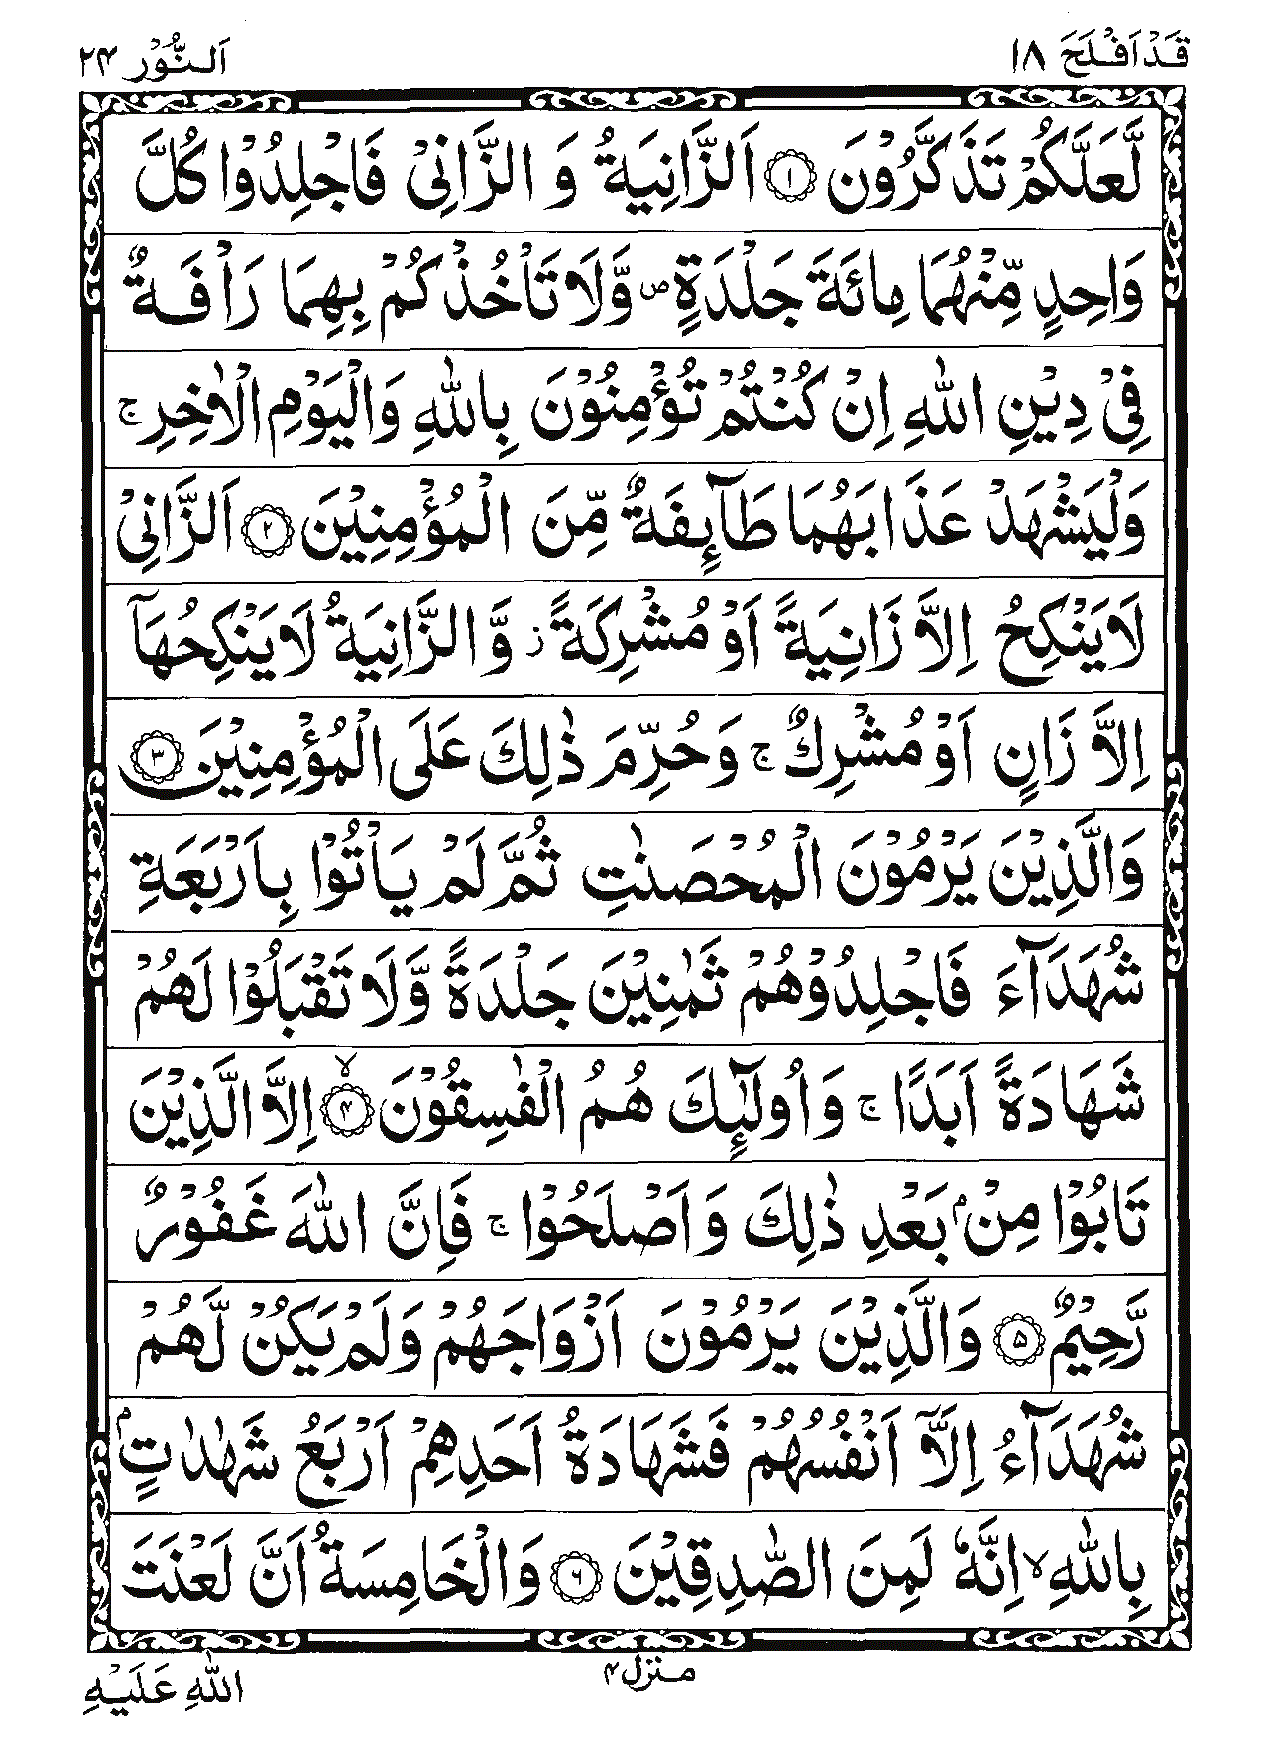 قَدْ اَفْلَحَ ۱۸
اَلنُّوْر ۲۴
لَّعَلَّكُمْ تَذَكَّرُوْنَ ﴿۱﴾ اَلزَّانِيَةُ وَ الزَّانِىْ فَاجْلِدُوْا كُلَّ
وَاحِدٍ مِّنْهُمَا مِائَةَ جَلْدَةٍ ۪ وَّلَا تَاْخُذْكُمْ بِهِمَا رَاْفَةٌ
فِىْ دِيْنِ اللّٰهِ اِنْ كُنْتُمْ تُؤْمِنُوْنَ بِاللّٰهِ وَالْيَوْمِ الْاٰخِرِ ۚ
وَلْيَشْهَدْ عَذَابَهُمَا طَآئِفَةٌ مِّنَ الْمُؤْمِنِيْنَ ﴿۲﴾ اَلزَّانِىْ
لَا يَنْكِحُ اِلَّا زَانِيَةً اَوْ مُشْرِكَةً ز وَّ الزَّانِيَةُ لَا يَنْكِحُهَاۤ
اِلَّا زَانٍ اَوْ مُشْرِكٌ ۚ وَحُرِّمَ ذٰلِكَ عَلَى الْمُؤْمِنِيْنَ ﴿۳﴾
وَالَّذِيْنَ يَرْمُوْنَ الْمُحْصَنٰتِ ثُمَّ لَمْ يَاْتُوْا بِاَرْبَعَةِ
شُهَدَآءَ فَاجْلِدُوْهُمْ ثَمٰنِيْنَ جَلْدَةً وَّلَا تَقْبَلُوْا لَهُمْ
شَهَادَةً اَبَدًا ۚ وَاُولٰٓئِكَ هُمُ الْفٰسِقُوْنَ ۙ﴿۴﴾ اِلَّا الَّذِيْنَ
تَابُوْا مِنْۢ بَعْدِ ذٰلِكَ وَاَصْلَحُوْا ۚ فَاِنَّ اللّٰهَ غَفُوْرٌ
رَّحِيْمٌ ﴿۵﴾ وَالَّذِيْنَ يَرْمُوْنَ اَزْوَاجَهُمْ وَلَمْ يَكُنْ لَّهُمْ
شُهَدَآءُ اِلَّاۤ اَنْفُسُهُمْ فَشَهَادَةُ اَحَدِهِمْ اَرْبَعُ شَهٰدٰتٍۭ
بِاللّٰهِ ۙ اِنَّهٗ لَمِنَ الصّٰدِقِيْنَ ﴿۶﴾ وَالْخَامِسَةُ اَنَّ لَعْنَتَ
منزل ۴
اللّٰهِ عَلَيْهِ